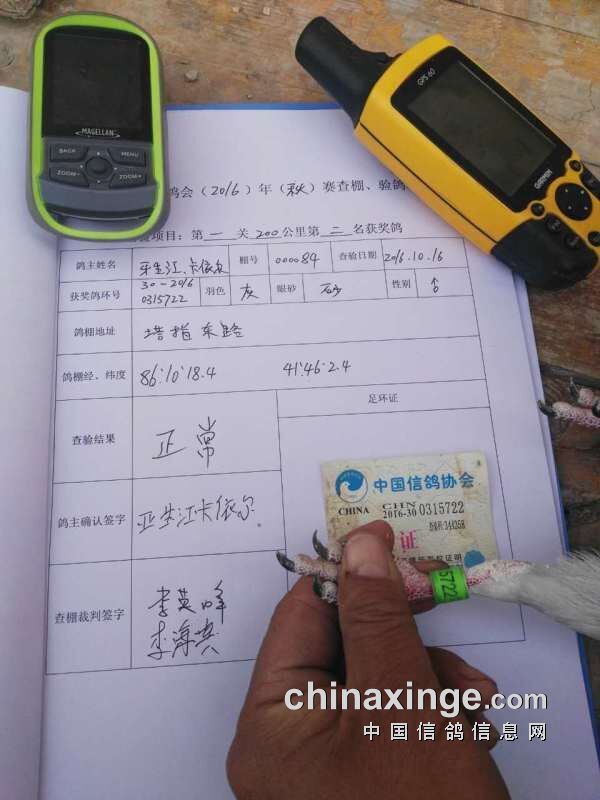 MAGELLAN
BACK
MENU
ZOOM-
ZOOM+
GPS 60
GARMIN
鸽会（2016）年（秋）赛查棚、验鸽
项目：第一关200公里第二名获奖鸽
鸽主姓名 牙生江.卡依尔 棚号 000084 查验日期 2016.10.16
获奖鸽环号 30-2016 0315722 羽色 灰 眼砂 砂 性别 ♂
鸽棚地址 塔指东路
鸽棚经、纬度 86°10′18.4 41°46′2.4
足环证
查验结果 正常
鸽主确认签字 亚生江卡依尔
查棚裁判签字 李英峰
李海英
中国信鸽协会
CHINA CHN
2016-30 0315722
证
5722
chinaxinge.com
中国信鸽信息网